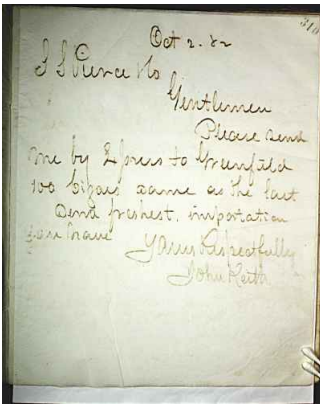 310
Oct 2. 82
S S Pierce &Co
Gentlemen
Please send
me by Express to Greenfield
100 Cigars same as the last
Send freshest importation
you have
Yours Respectfully
John Keith